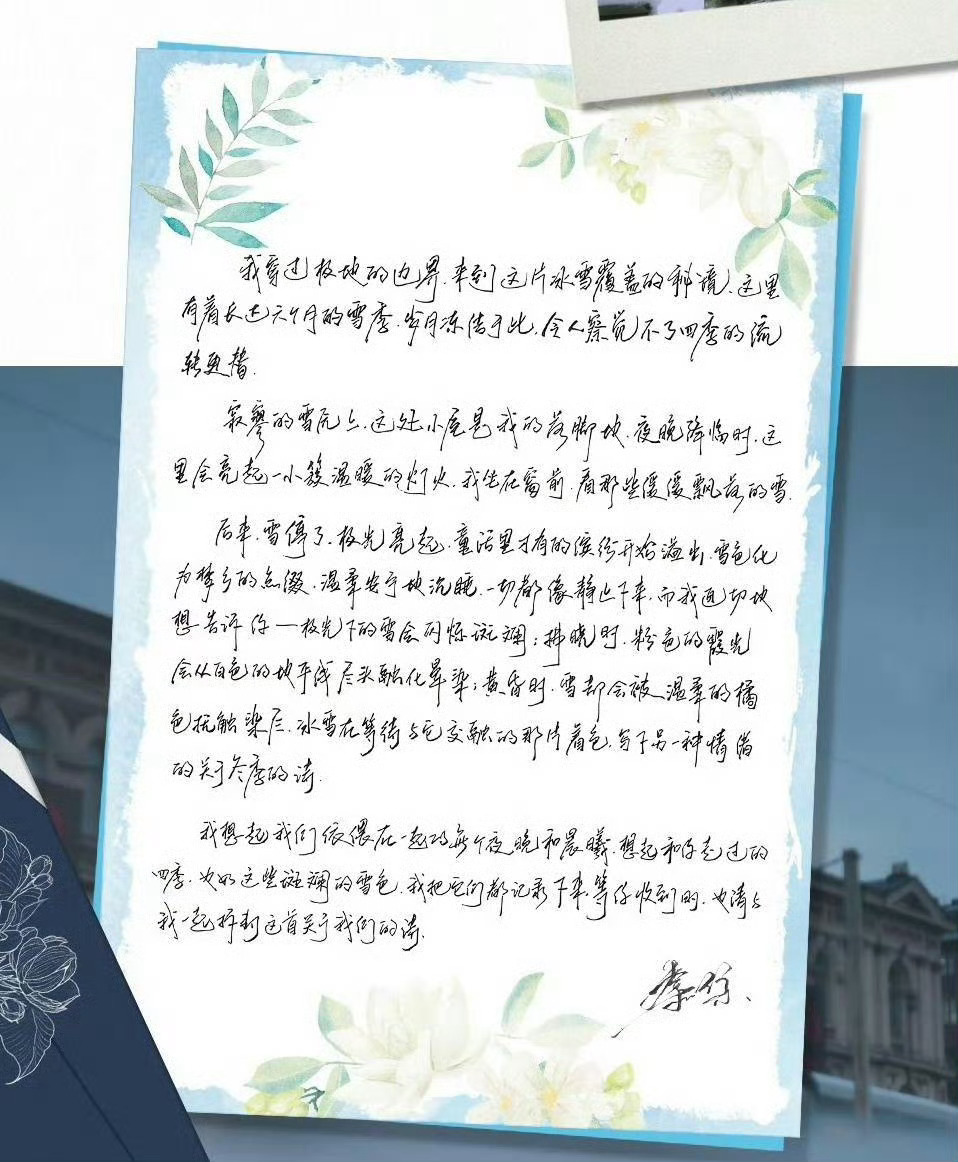 我穿过极地的边界，来到这片冰雪覆盖的秘境，这里
有着长达六个月的雪季，岁月冻结于此，令人察觉不了四季的流
转更替。
寂寥的雪原上，这处小屋是我的落脚地，夜晚降临时，这
里会亮起一小簇温暖的灯火，我坐在窗前，看那些缓缓飘落的雪。
后来，雪停了，极光亮起，童话里才有的缤纷开始溢出，雪色化
为梦乡的点缀，温柔安宁地沉睡，一切都像静止下来，而我迫切地
想告诉你—极光下的雪会闪烁斑斓；拂晓时，粉色的霞光
会从白色的地平线尽头融化晕染；黄昏时，雪却会被温柔的橘
色抚触染尽，冰雪在等待与它交融的那片着色，写下另一种情绪
的关于冬季的诗。
我想起我们依偎在一起的每个夜晚和晨曦，想起和你走过的
四季，也如这些斑斓的雪色，我把它们都记录下来，等你收到时，也请与
我一起抒写这首关于我们的诗。